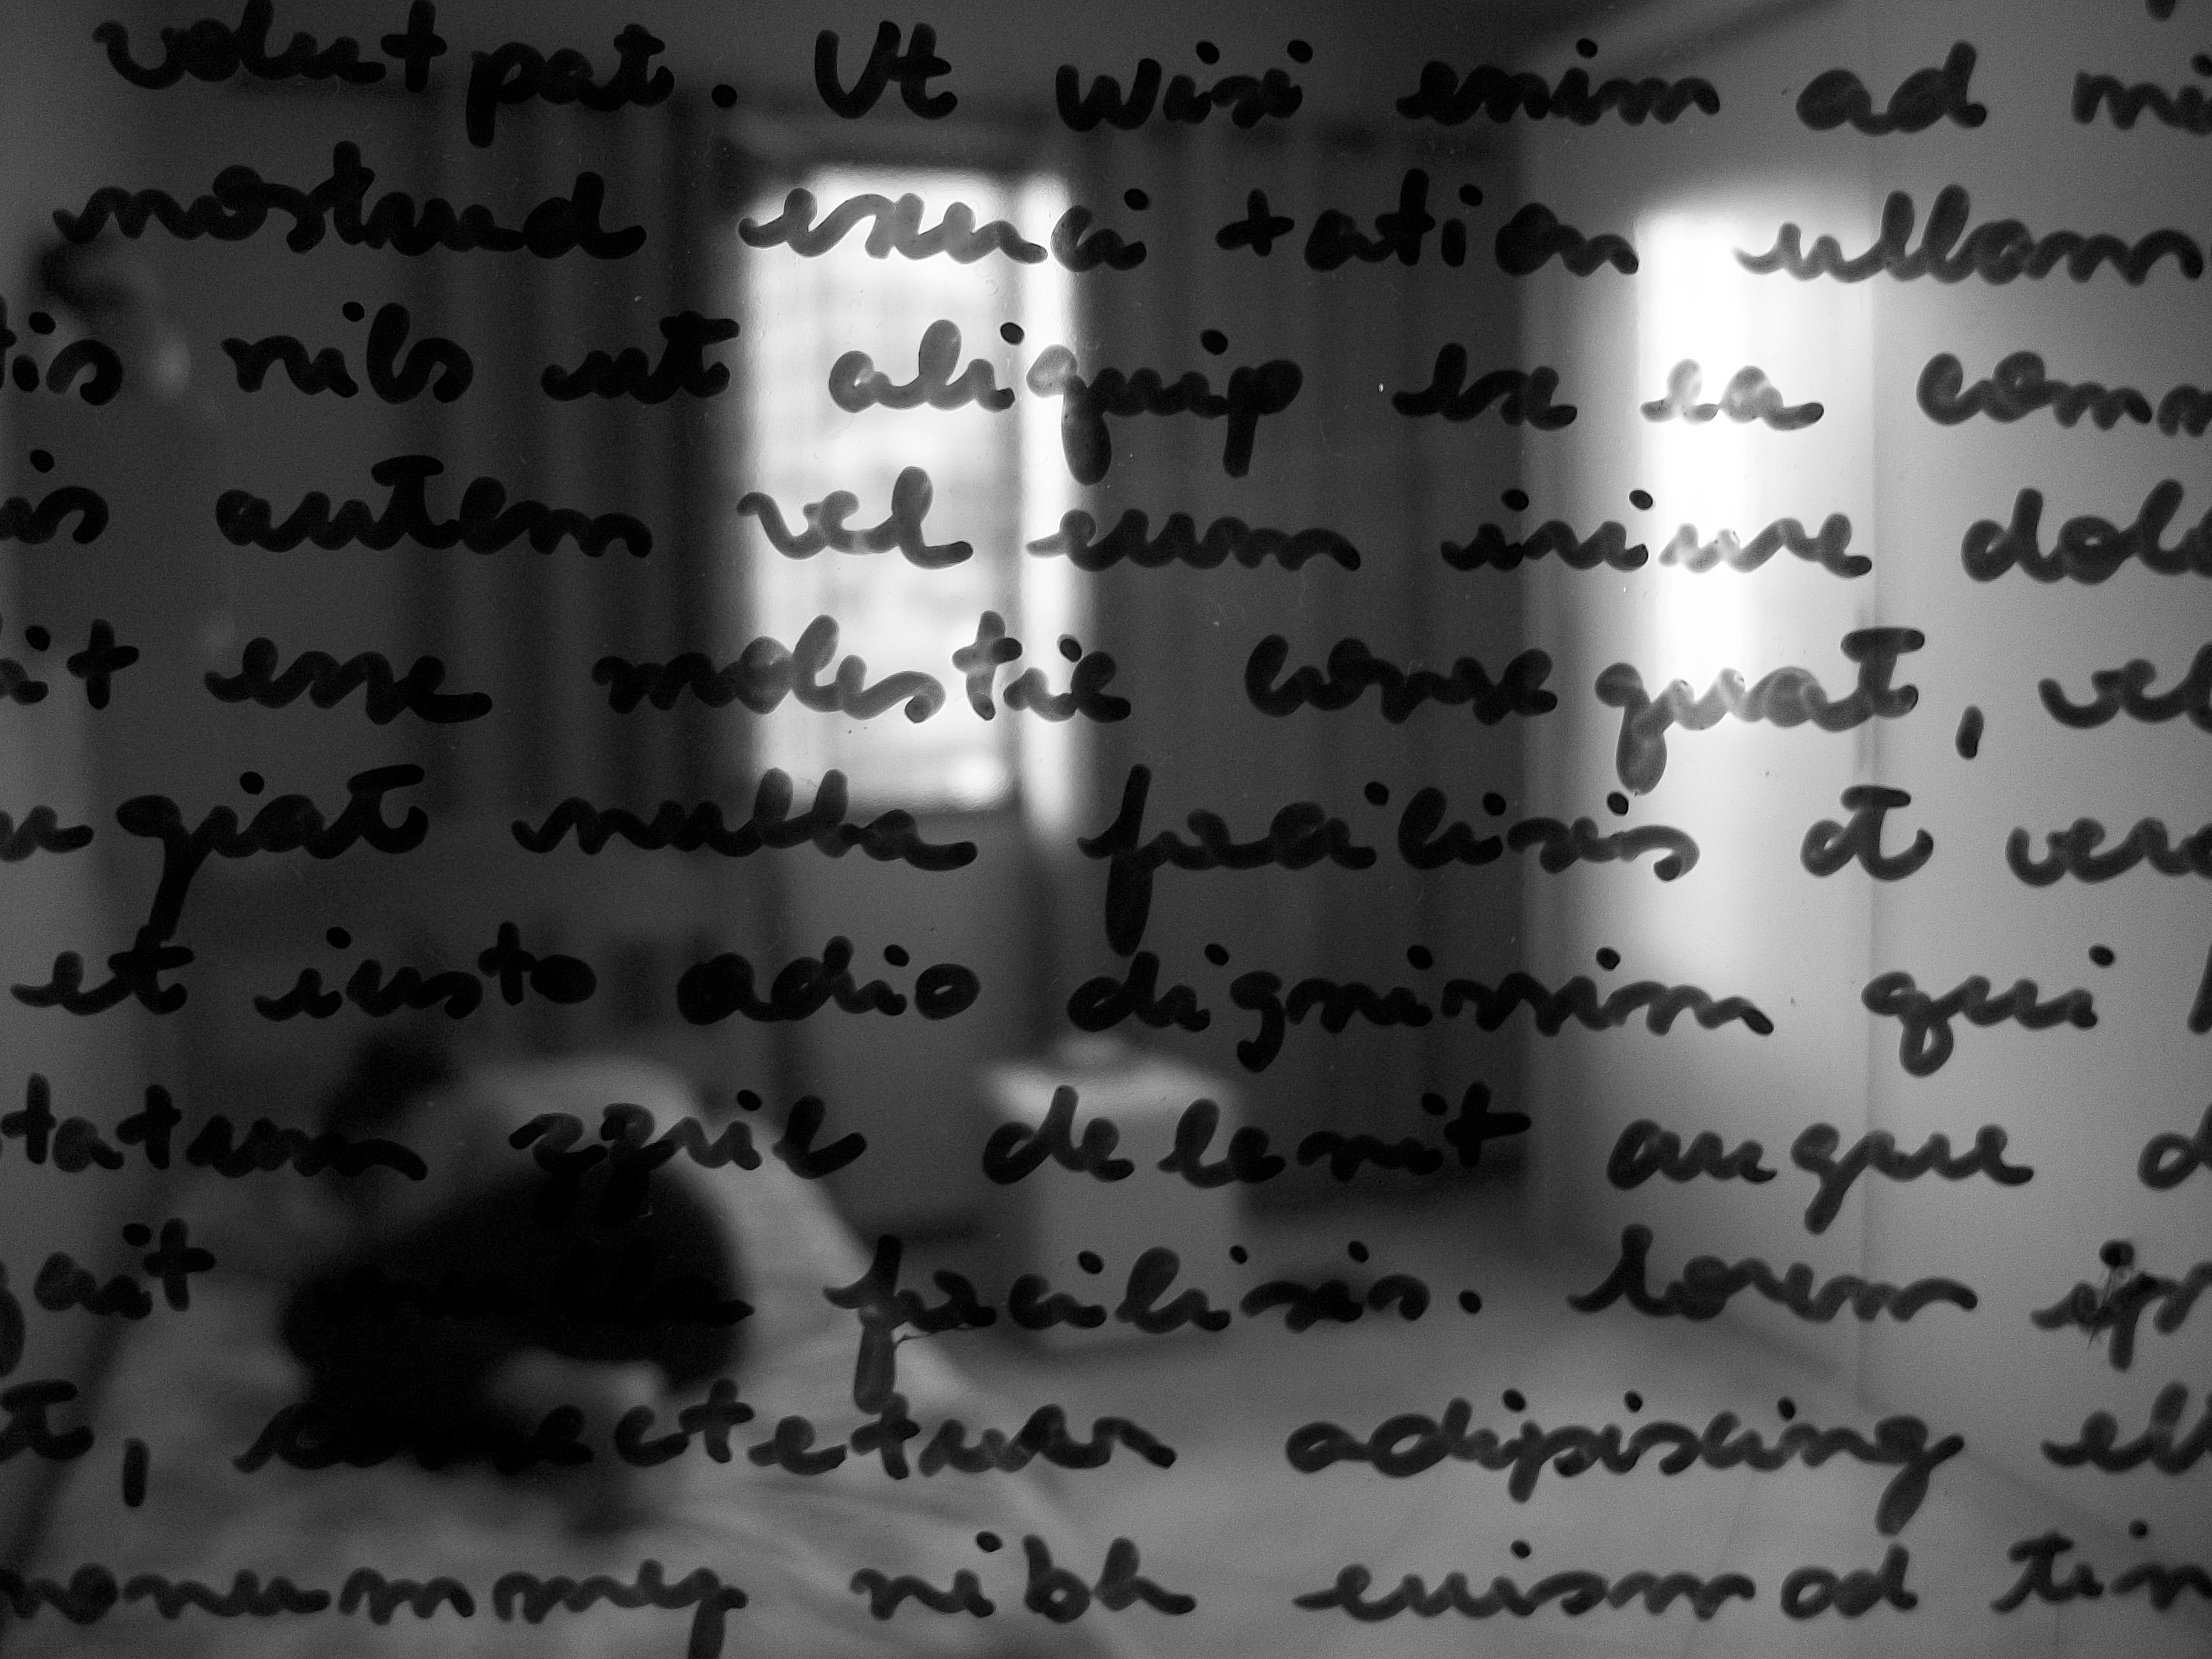 volutpat. Ut wisi enim ad mi
nostrud exerci tation ullam
tis nils ut aliquip ex ea comm
is autem vel eum iriure dolo
it esse molestie consequat, vel
u giat nulla facilisis et vero
et iusto odio dignissim qui
tatum zzril delenit augue d
gait nulla facilisis. Lorem ip
t, consectetuer adipiscing el
nonummy nibh euismod tin